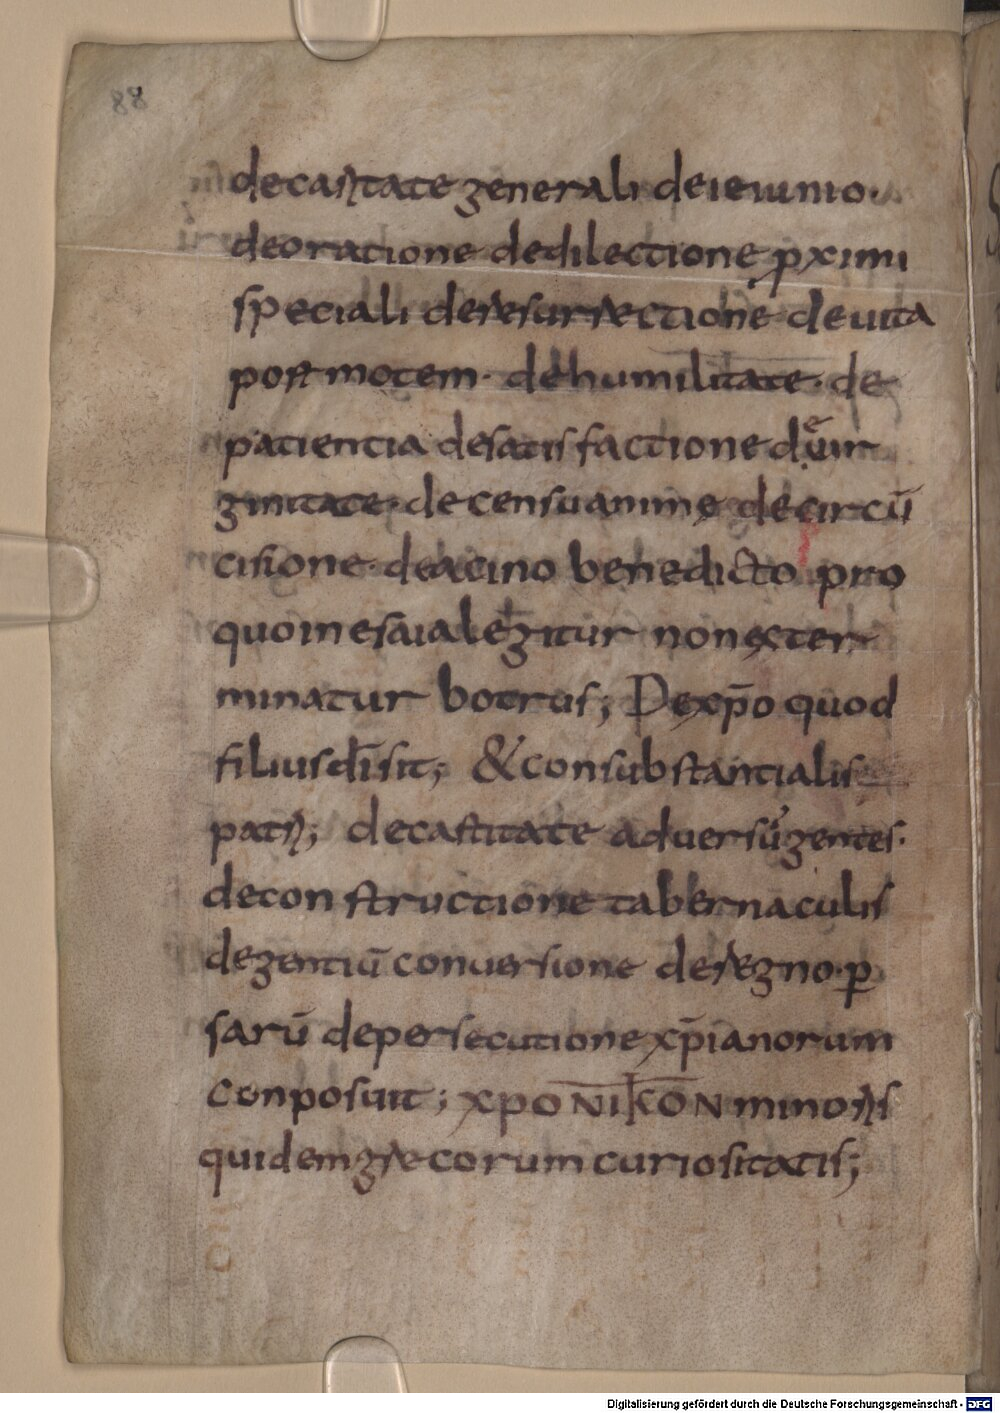 88
decaritate generali deieiunio·
deoratione dedilectione ꝓximi
speciali deresurrectione deuita
post motem· dehumilitate· de
patientia desatisfactione deuir
ginitate· decensuanimę decircū
cisione· deacino benedicto pro
quoinesaialegitur nonexter
minatur botrus; Dexp̄o quod
filiusdīsit; &consubstantialis
patri; decastitate aduersūgentes·
deconstructione tabernaculis
degentiū conuersione deregno·ꝑ
sarū depersecutionexp̄ianorum
conposuit; xpoNIKON minoris
quidemgrecorum curiositatis;
Digitalisierung gefördert durch die Deutsche Forschungsgemeinschaft - DFG